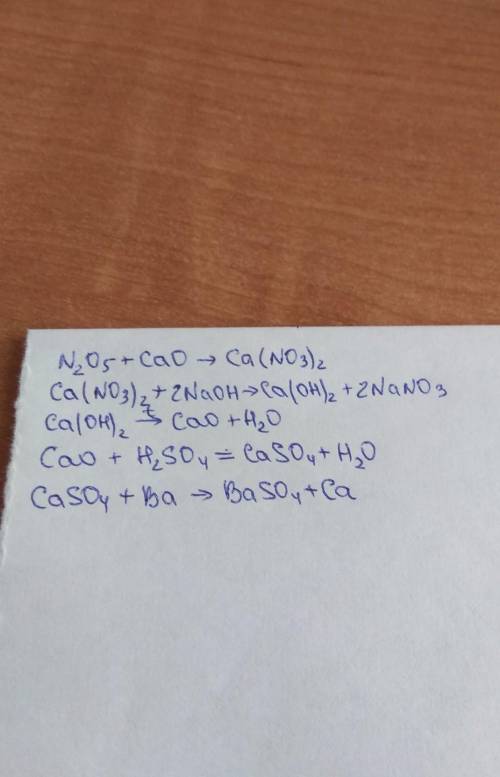 N₂O₅ + CaO → Ca(NO₃)₂
Ca(NO₃)₂ + 2NaOH → Ca(OH)₂ + 2NaNO₃
Ca(OH)₂ →ᵗ CaO + H₂O
CaO + H₂SO₄ = CaSO₄ + H₂O
CaSO₄ + Ba → BaSO₄ + Ca